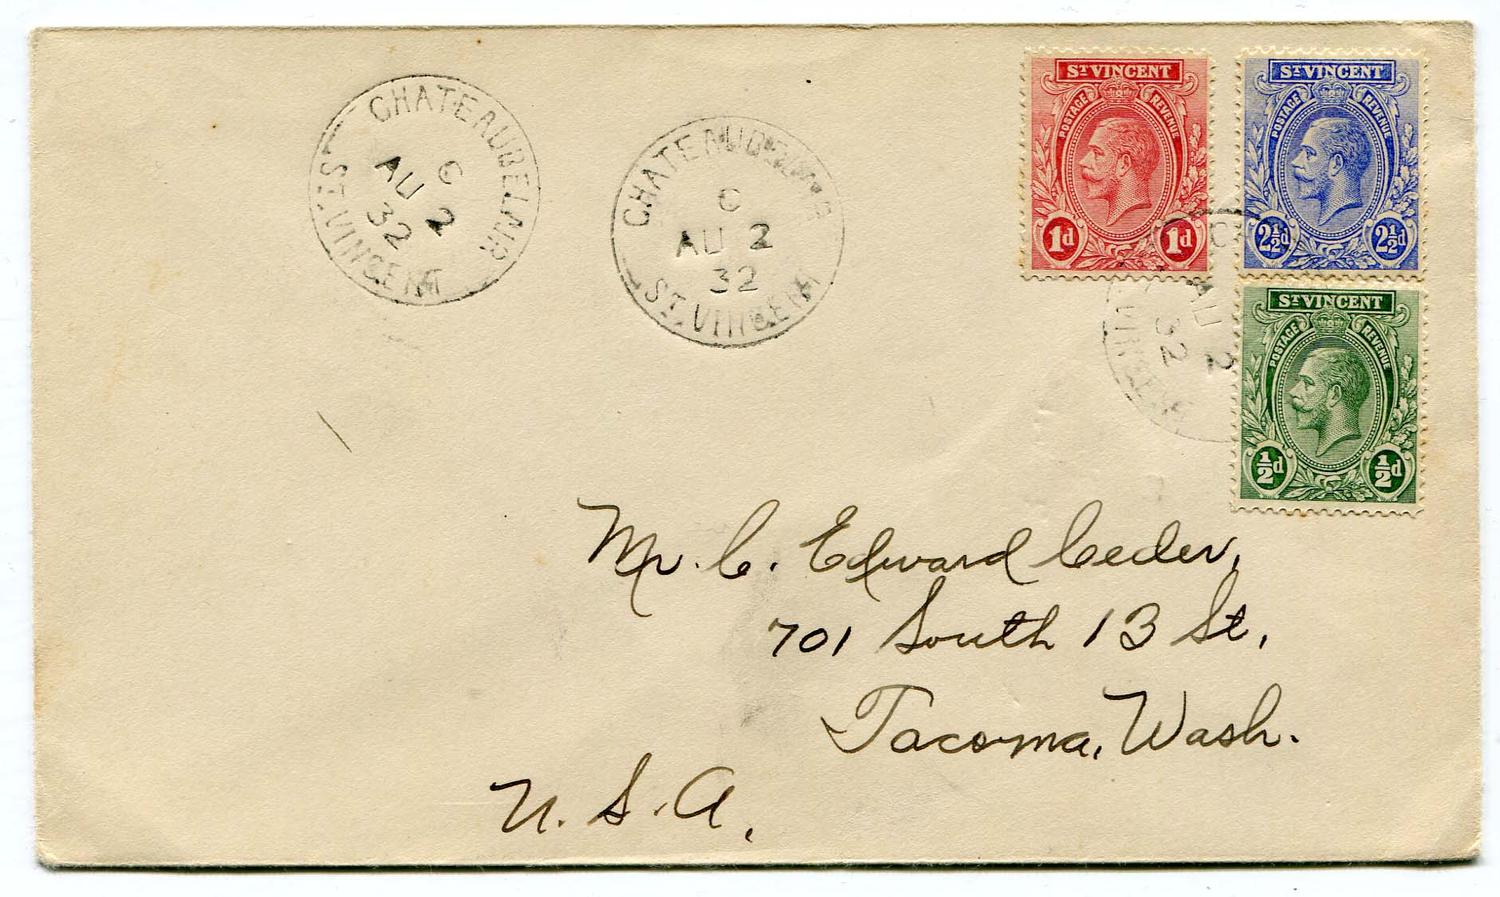 CHATEAUBELAIR
C
AU 2
32
ST. VINCENT
CHATEAUBELAIR
C
AU 2
32
ST. VINCENT
ST VINCENT
POSTAGE REVENUE
1d 1d
ST VINCENT
POSTAGE REVENUE
2½d 2½d
C
AU 2
32
ST VINCENT
POSTAGE REVENUE
½d ½d
Mr. C. Edward Ceder,
701 South 13 St,
Tacoma, Wash.
U.S.A.